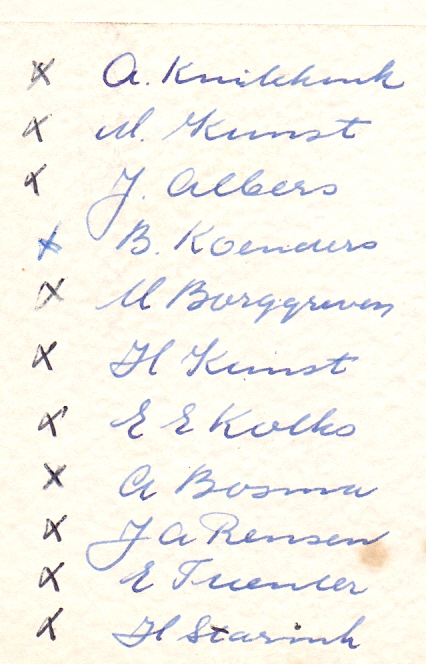 x A. Knikkink
x M. Kunst
x J. Albers
x B. Koenders
x M Borggreven
x H Kunst
x E E Kolks
x A Bosma
x J A Rensen
x E Tuenter
x H Starink